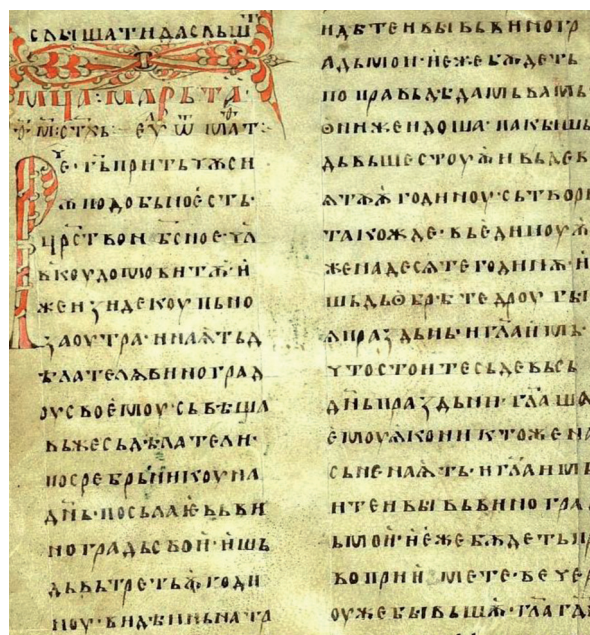 слышатидаслышⷮ
мⷭ҇ца· марьта·
еѵⷢ ѿ маⷴ҇:
Рⷱе· г҃ь притъчѫси
ѭ подобьноѥсть·
црⷭ҇твон҃бсноечл҃
вкоудомовитѫ· и
жеизидекоупьно
заоутра· инаѩтьд
ѣлателѧвиноград
оусвоемоу· съвѣща
вьжесьдѣлатели·
посребрьникоуна
дн҃ь· посьлаѥвьви
ноградьсвои· ишь
дьвьтретьѫ· годи
ноу· видѣинынатр
идѣтеивывьвиногр
адьмои· иежебѫдеть
поправьдѣдамьвамь·
ѳнижеидоша· пакышь
дьвьшестоуѭивьдев
ѧтѫѭ годиноу· сьтвори
такожде· вьединоуѭ
женадесѧтегодинѫ· и
шьдьѳбрѣтедроугы
ѧпраздьны· игл҃аимь·
чтостоитесьдевьсь
дн҃ьпраздьни· гл҃ашѧ
ѥмоуѫконикտожена
сьненаѩть· игл҃аимь
итеивывьвиногра
дьмои· иежебѫдетьпр
авоприимете· вечер
оужебывьшѫ· гл҃аг҃дн